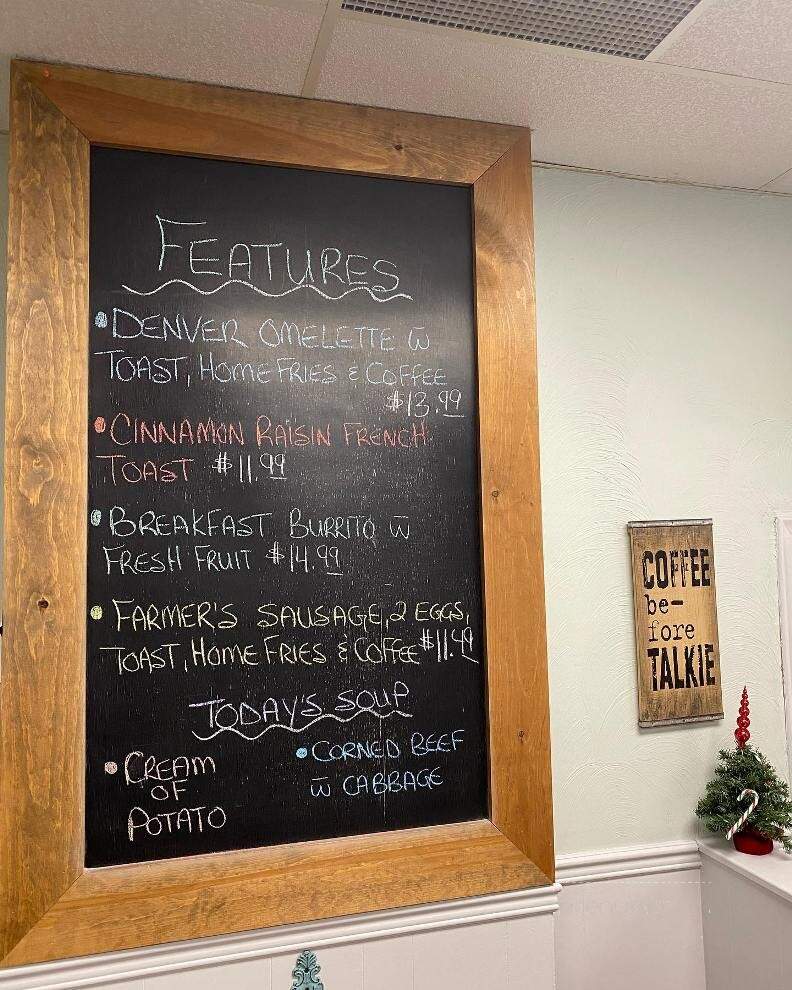 FEATURES
• DENVER OMELETTE w̄
TOAST, HOME FRIES & COFFEE
$13.99
• CINNAMON RAISIN FRENCH
TOAST $11.99
• BREAKFAST BURRITO w̄
FRESH FRUIT $14.99
• FARMER'S SAUSAGE, 2 EGGS,
TOAST, HOME FRIES & COFFEE $11.49
TODAY'S SOUP
• CREAM
OF
POTATO
• CORNED BEEF
w̄ CABBAGE
COFFEE
be-
fore
TALKIE